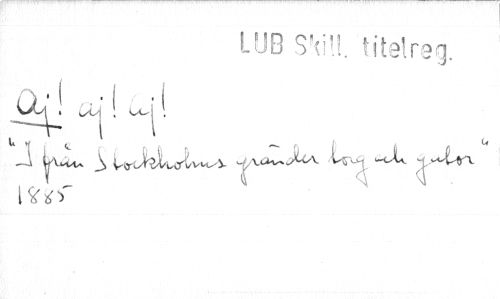 LUB Skill. titelreg.
Aj! aj! aj!
"I från Stockholms gränder torg och gator"
1885